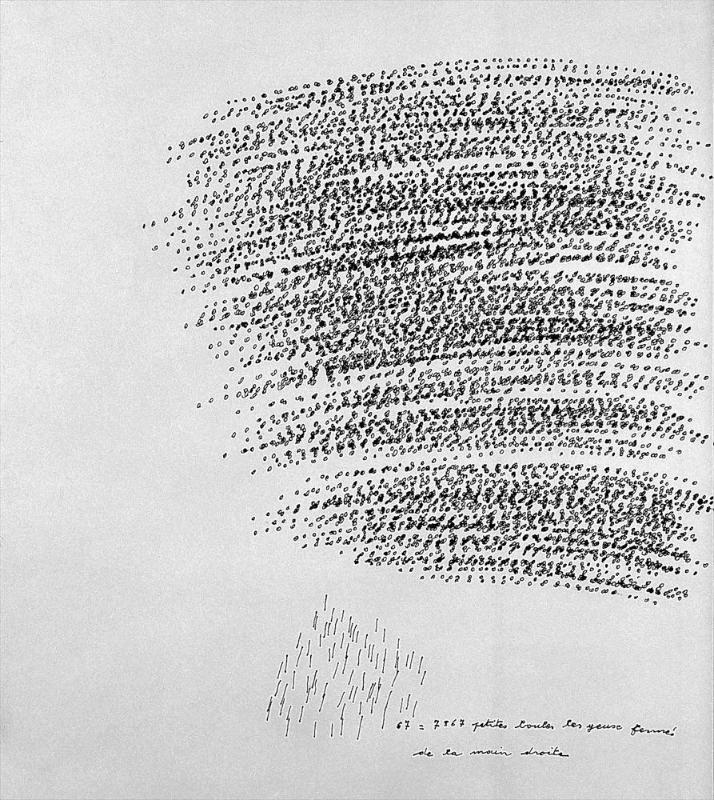 67 = 7867 petites boules les yeux fermés
de la main droite